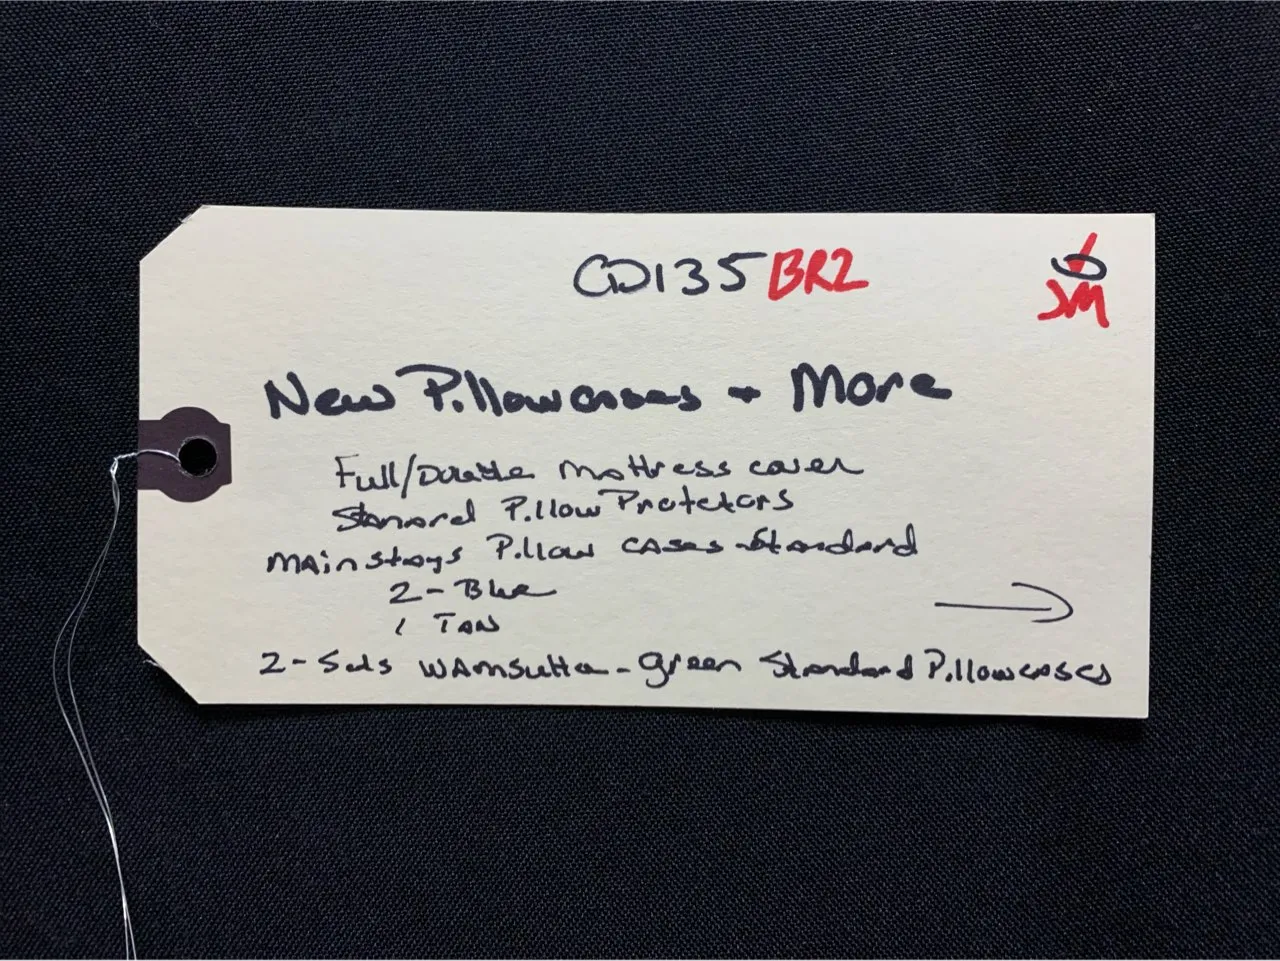 CD135 BR2
JM
New Pillowcases + More
Full/Double Mattress cover
Stanard Pillow Protetors
MAinstays Pillow cases - Standard
2 - Blue
1 TAN
2 - Sets WAmsutta - green Standard Pillowcases